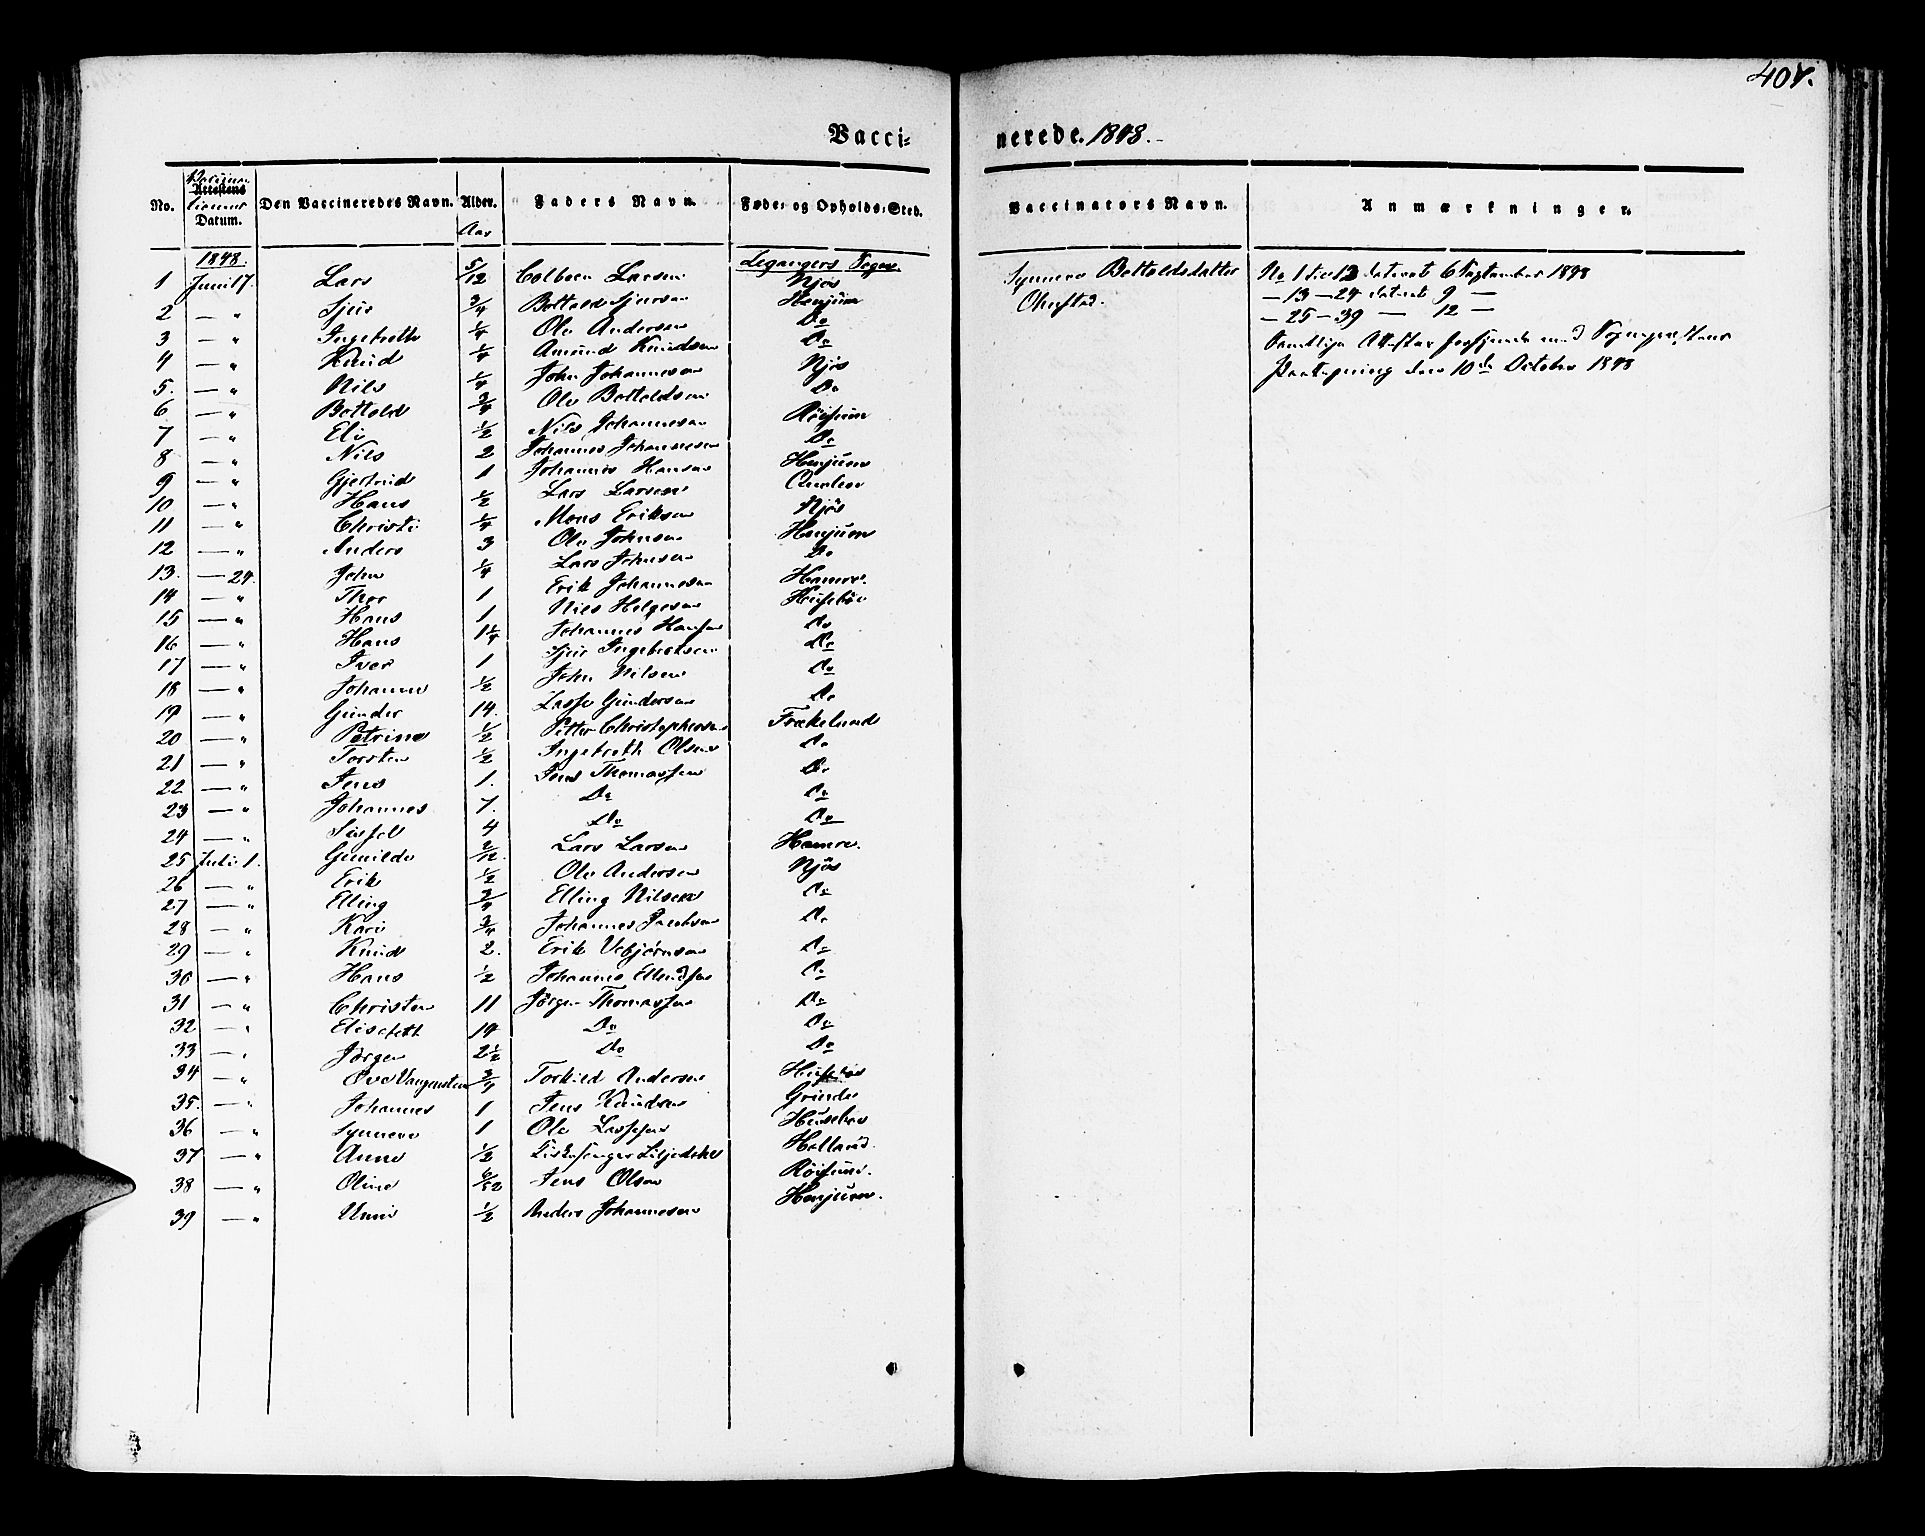 407.
Vacci- nerede. 1848.
No. | Vaccinationens Attestens Datum. | Den Vaccineredes Navn. | Alder. Aar | Faders Navn. | Føde- og Opholds-Sted. | Vaccinators Navn. | Anmærkninger.
1848. | Legangers Sogn.
1 | Juni 17. | Lars | 5/12 | Colbein Larsen | Njøs | Synneve Bottolds datter | No 1 til 12 dateret 6 September 1848
2 | — " | Sjur | 3/4 | Bottold Sjursen | Henjum | Ohnstad. | — 13 — 24 dateret 9 —
3 | — " | Ingebreth | 1/4 | Ole Andersen | Do | — 25 — 39 — 12 —
4 | — " | Knud | 1/4 | Amund Knudsen | Do | Samtlige Attester forsynede med Sognepræstens
5. | — " | Nils | 1/4 | John Johannesen | Njøs | Paategning den 10de October 1848
6 | — " | Bottold | 3/4 | Ole Bottoldsen | Do
7 | — " | Eli | 1/2 | Nils Johannesen | Røisum
8 | — " | Nils | 2 | Johannes Johannesen | Do
9 | — " | Gjertrud | 1 | Johannes Hansen | Henjum
10 | — " | Hans | 1/2 | Lars Larsen
11 | — " | Christi | 1/4 | Mons Eriksen | Njøs
12 | — " | Anders | 3 | Ole Johnsen | Henjum
13. | — 24. | John | 1/4 | Lars Johnsen | Do
14 | — " | Thor | 1 | Erik Johannesen | Hamre.
15 | — " | Hans | 1 | Nils Helgesen | Husebøe
16 | — " | Hans | 1 1/4 | Johannes Hansen | Do
17 | — " | Iver | 1 | Sjur Ingebretsen | Do
18 | — " | Johanne | 1/2 | John Nilsen | Do
19 | — " | Gunder | 14. | Lasse Gundersen | Do
20 | — " | Petrine | 1/2 | Petter Christophersen | Frækelund
21 | — " | Torsten | 1/2 | Ingebreth Olsen | Do
22 | — " | Jens | 1. | Jens Thomassen | Do
23 | — " | Johannes | 7. | Do | Do
24 | — " | Sissel | 4 | Do | Do
25 | Juli 1. | Gunilde | 2/12. | Lars Larsen | Hamre.
26 | — " | Erik | 1/2 | Ole Andersen | Njøs
27 | — " | Elling | 3/4 | Elling Nilsen | Do
28 | — " | Kari | 3/4 | Johannes Jacobsen | Do
29 | — " | Knud | 2. | Erik Vebjørnsen | Do
30 | — " | Hans | 1/2 | Johannes Ellendsen | Do
31 | — " | Christen | 11 | Jørgen Thomassen | Do
32 | — " | Elisebeth | 14 | Do | Do
33 | — " | Jørgen | 2 1/2 | Do | Do
34 | — " | Ove Vangensten | 3/4 | Torkild Andersen | Husebøe
35. | — " | Johannes | 1 | Jens Knudsen | Grinde
36 | — " | Synneve | 1 | Ole Lassesen | Husebøe
37 | — " | Anne | 1/2 | Hetland.
38 | — " | Oline | 6/12 | Jens Olsen | Røisum.
39 | — " | Unni | 1/2 | Anders Johannesen | Henjum.